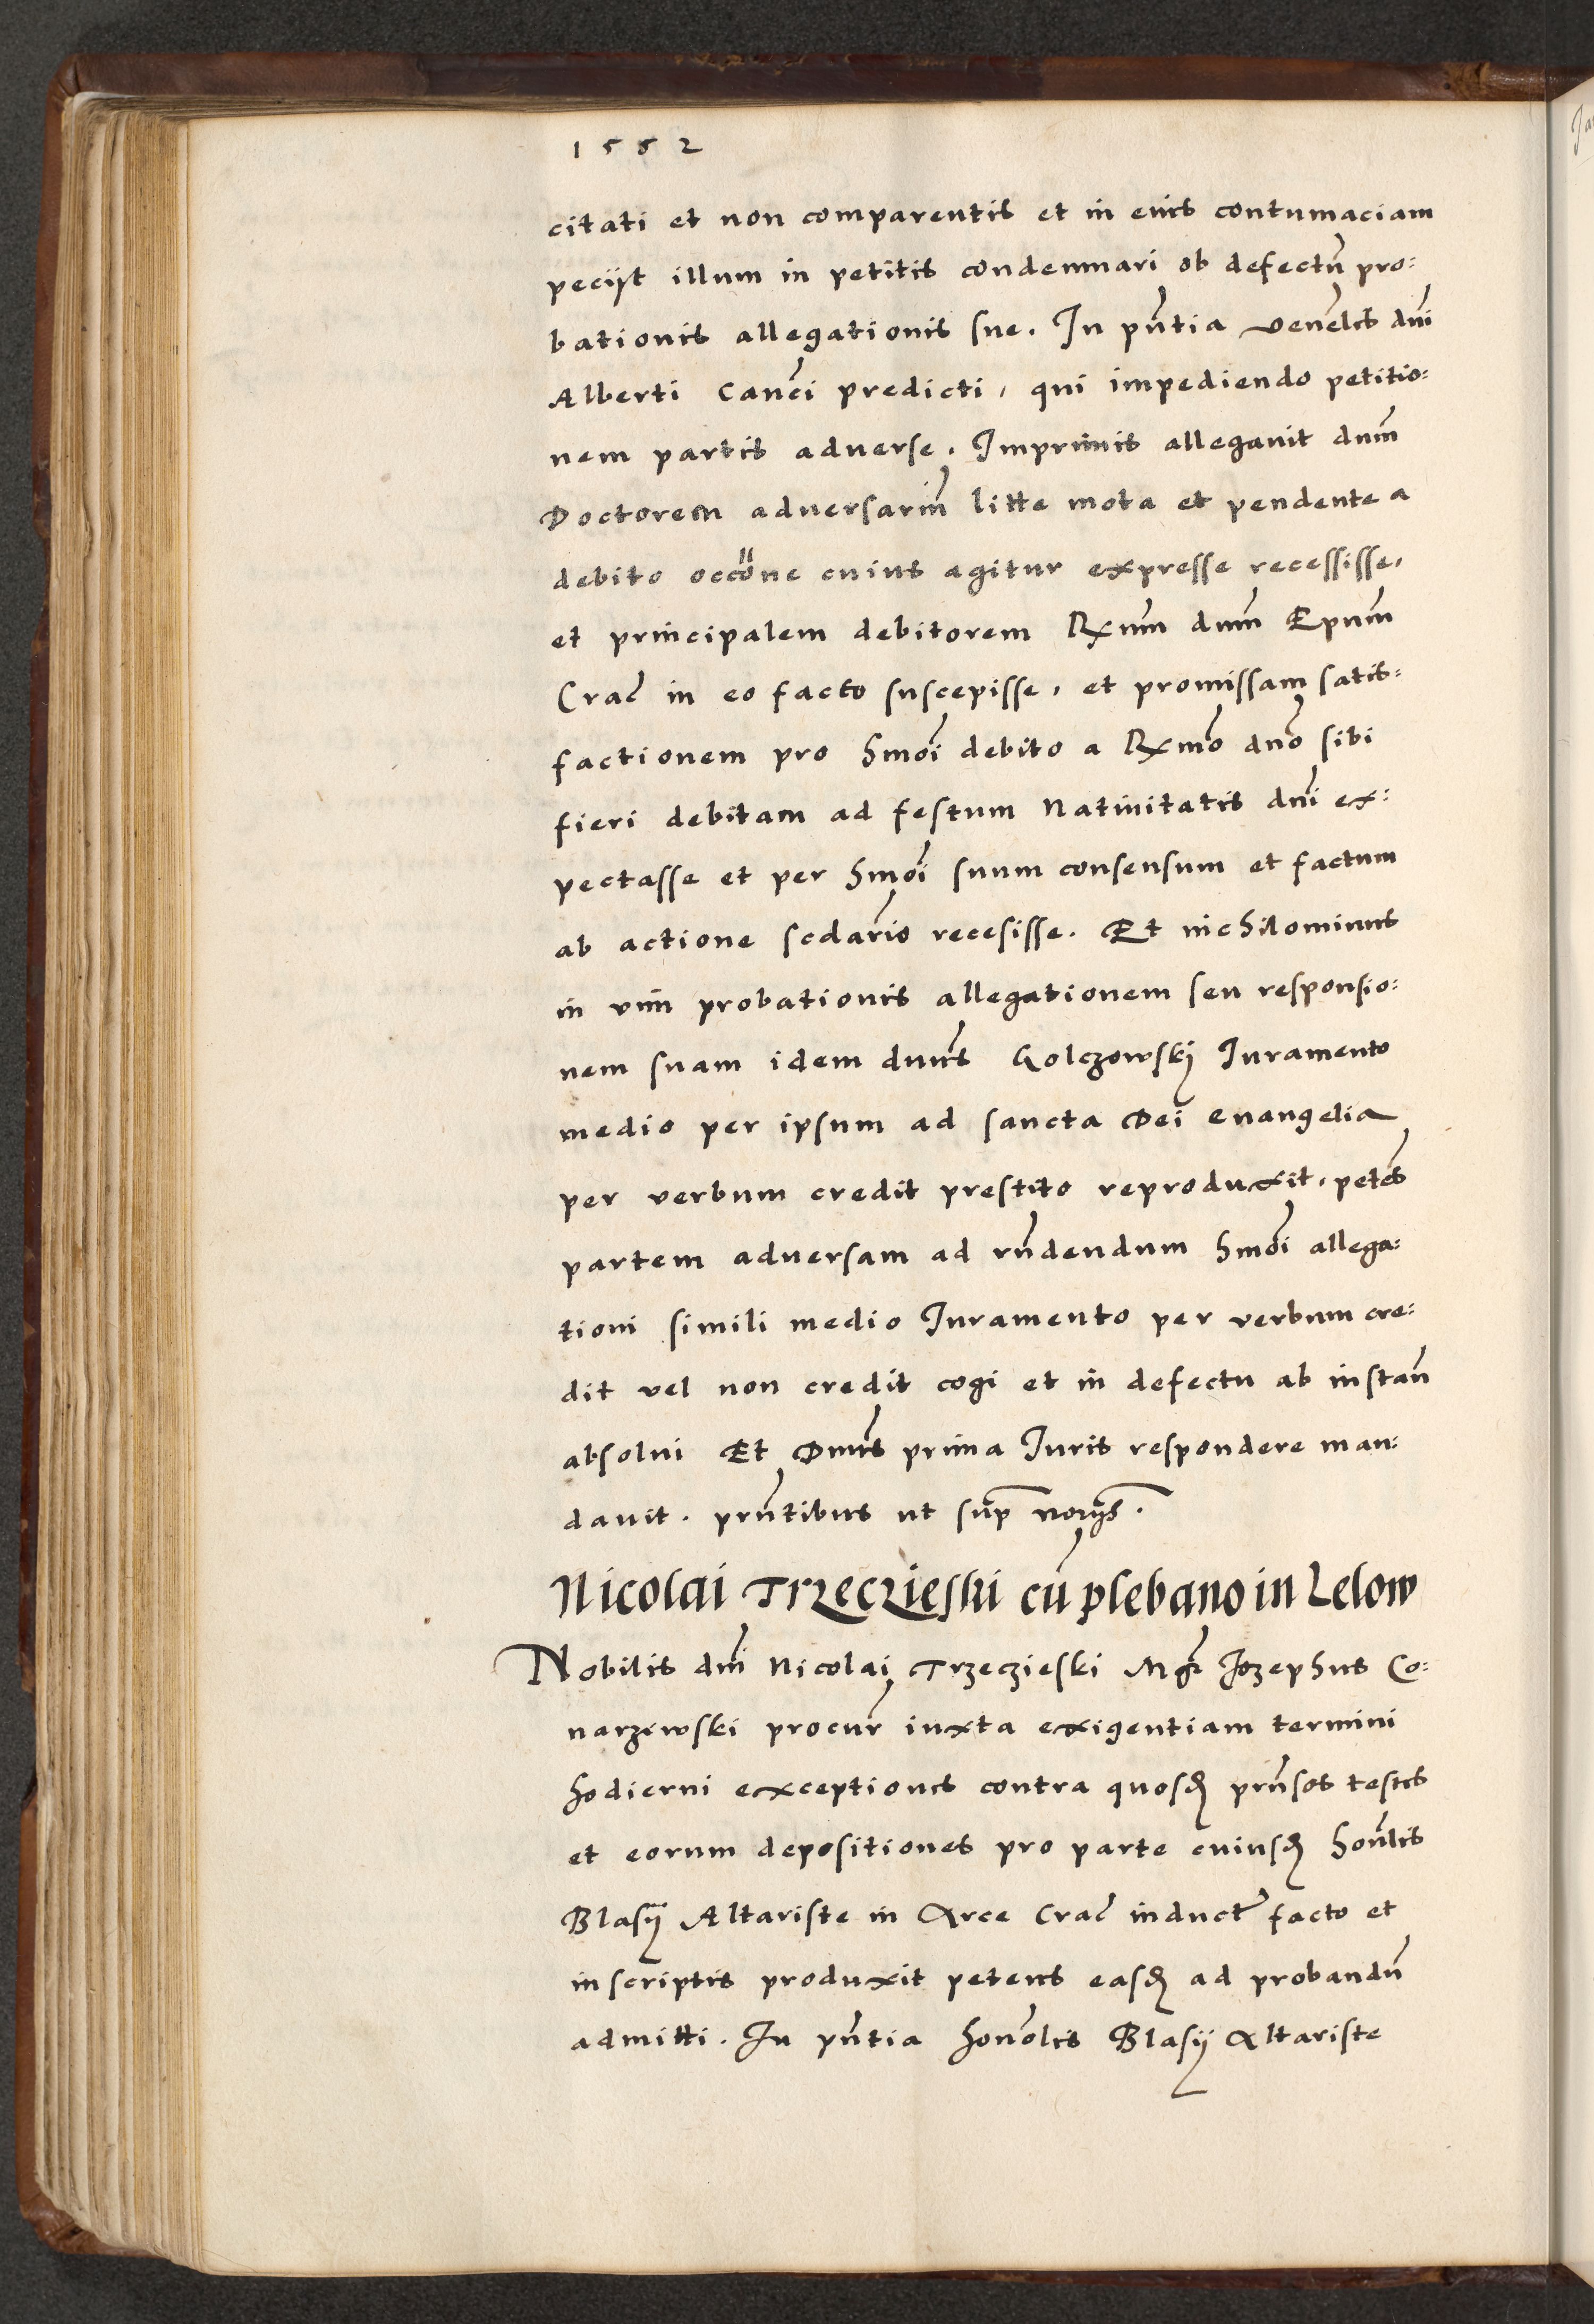 1552
citati et non comparentis et in eius contumaciam
peciyt illum in petitis condemnari ob defectũ pro:
bationis allegationis sue. In pñtia veneĺis dñi
Alberti Cancĩ predicti, qui impediendo petitio:
nem partis adverse. Imprimis allegavit dnm̃
Doctorem adversariũ litte mota et pendente a
debito occõne cuius agitur expresse recessisse,
et principalem debitorem Rxum̃ dum̃ Epum̃
Crac̃ in eo facto suscepisse, et promissam satis:
factionem pro hmõi debito a Rxmõ dnõ sibi
fieri debitam ad festum Nativitatis dñi ex:
pectasse et per hmõi suum consensum et factum
ab actione scdariõ recesisse. Et nichilominus
in vim probationis allegationem seu responsio:
nem suam idem dnus̃ Golczowskj Iuramento
medio per ipsum ad sancta Dei evangelia
per verbum credit prestito reproduxit, petẽs
partem adversam ad rñdendum hmõi allega:
tioni simili medio Iuramento per verbum cre:
dit vel non credit cogi et in defectu ab instañ
absolvi Et Dnus̃ prima Iuris respondere man:
davit. pntĩbus ut sup̃ noryŝ.
Nicolai Trzeczieski cũ plebano in Lelow
Nobilis dñi Nicolai Trzeczieski Mgr̃ Jozephus Co:
narzewski procur̃ iuxta exigentiam termini
hodierni exceptiones contra quosd̃ prñsos testes
et eorum depositiones pro parte cuiusd̃ honĺis
Blasÿ Altariste in Arce Crac̃ induct̃ facto et
in scriptis produxit petens easd̃ ad probandũ
admitti. In pñtia honoĺis Blasÿ Altariste